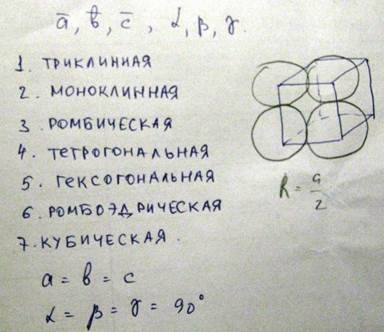 a̅, b̅, c̅, α, β, γ.
1. ТРИКЛИННАЯ
2. МОНОКЛИННАЯ
3 РОМБИЧЕСКАЯ
4. ТЕТРОГОНАЛЬНАЯ
5. ГЕКСОГОНАЛЬНАЯ
6. РОМБОЭДРИЧЕСКАЯ
7. КУБИЧЕСКАЯ.
a = b = c
α = β = γ = 90°
R = a/2